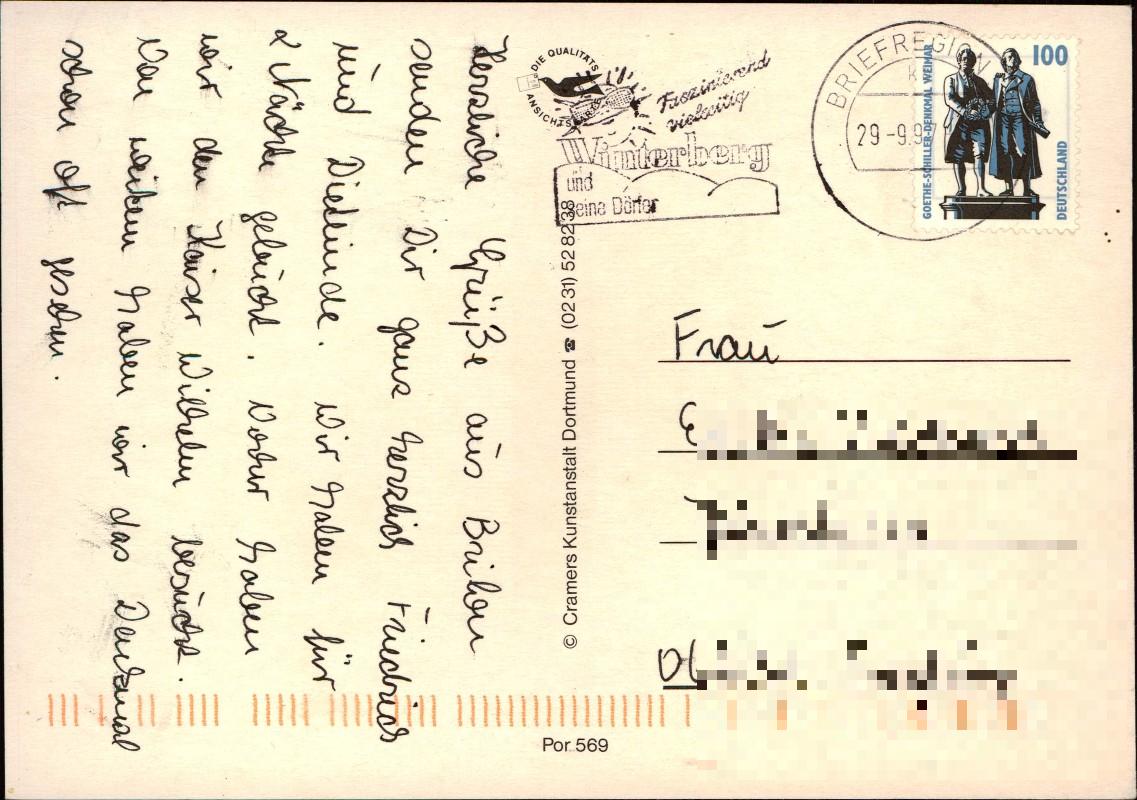 Herzliche Grüße aus Brilon
senden Dir ganz herzlich Friedrich
und Dietlinde. Wir haben für
2 Nächte gebucht. Vorher haben
wir den Kaiser Wilhelm besucht.
Von weitem haben wir das Denkmal
schon oft gesehen.
DIE QUALITÄTS
ANSICHTS
Faszinierend
vielseitig
Winterberg
und
seine Dörfer
BRIEFREGION
29-9.9
100
GOETHE-SCHILLER-DENKMAL WEIMAR
DEUTSCHLAND
© Cramers Kunstanstalt Dortmund ☎ (02 31) 52 82 38
Frau
Por 569